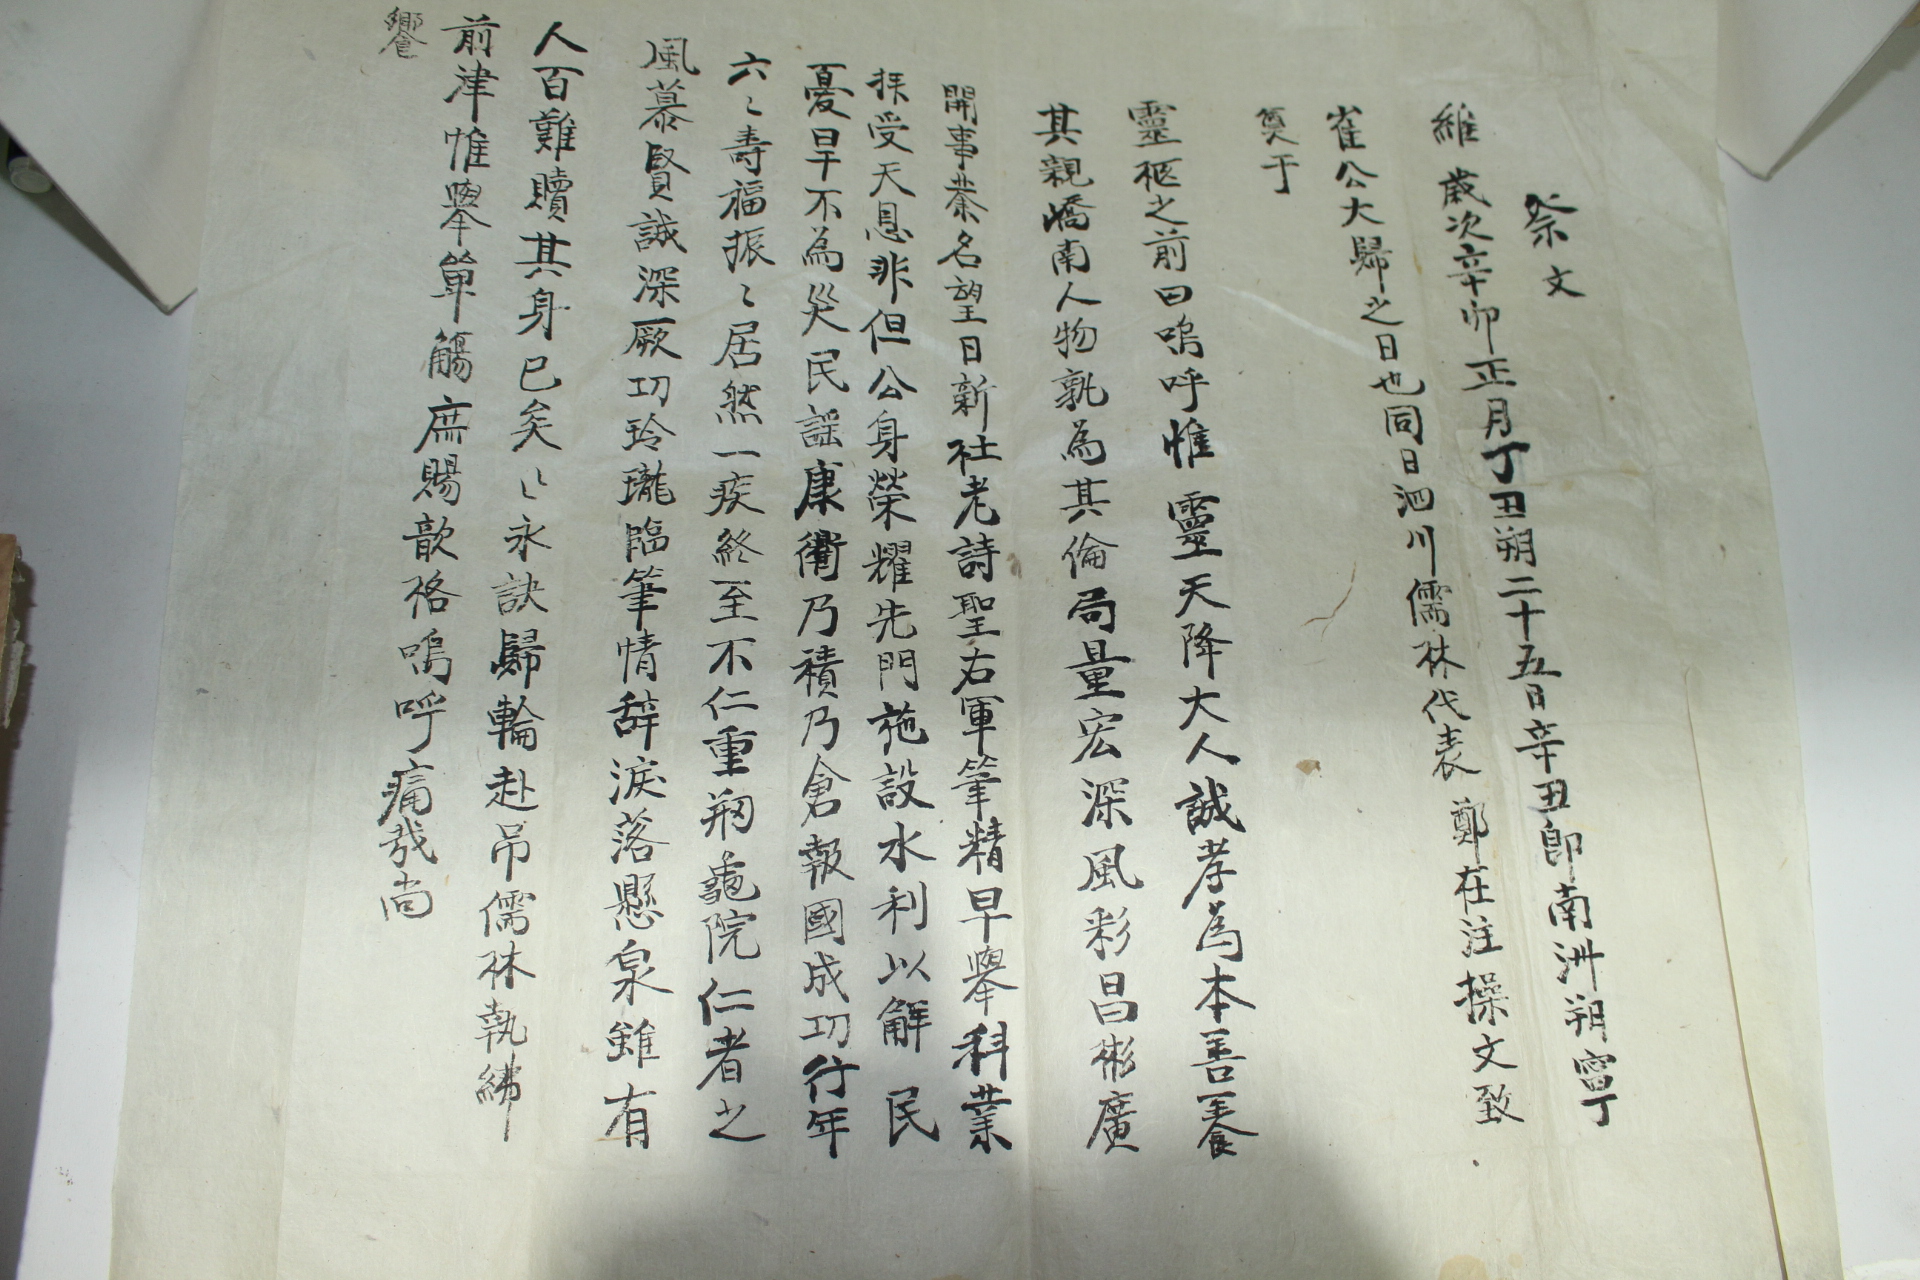 祭文
維 歲次辛卯正月丁丑朔二十五日辛丑卽南洲朔寧
崔公大歸之日也同日泗川儒林代表 鄭在注操文致
奠于
靈柩之前曰嗚呼惟 靈天降大人誠孝為本善養
其親嶠南人物孰為其倫局量宏深風彩昌彬廣
開事業名望日新社老詩聖右軍筆精早擧科業
拝受天恩非但公身榮耀先門施設水利以解 民
憂旱不為災民謠康衢乃積乃倉報國成功行年
六〻壽福振〻居然一疾終至不仁重刱龜院仁者之
風慕賢誠深厥功玲瓏臨筆情辞淚落懸泉雖有
人百難贖其身已矣〻永訣歸輪赴吊儒林執紼
前津惟擧單觴庶賜歆格嗚呼痛哉尚
饗